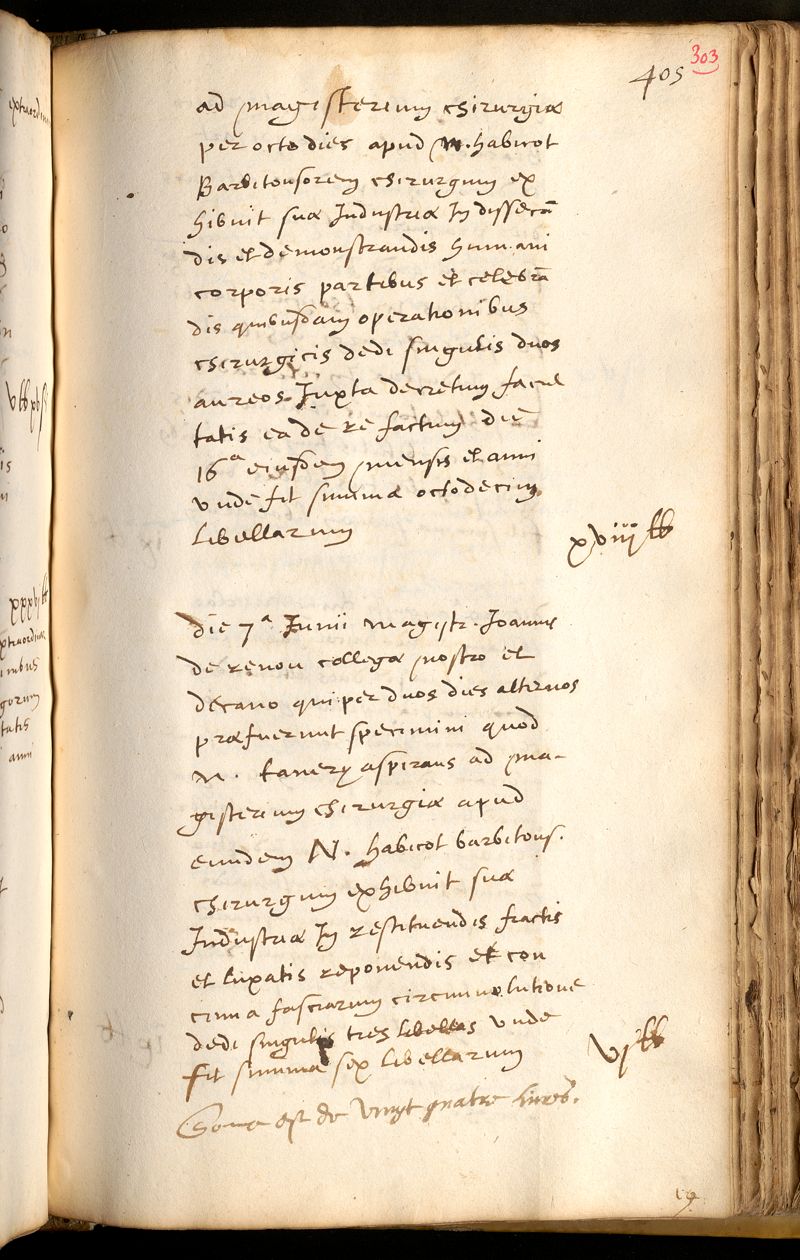 303
405
ad magisterium chirurgiæ
per octo dies apud M. habicot
Barbitonsorem chirurgum ex
hibuit suæ Industriæ In dissecā
dis et demonstrandis humani
corporis partibus et celebrā
dis quibusdam operationibus
chirurgicis dedi singulis duos
aureos Iuxta decretum facul
tatis ea de re factum die
16ᵃ eiusdem mensis et anni
vnde fit summa octodecim
libellarum
xviij ℔
die 7ᵃ Junii magistr. Joanne
de renou collegæ nostro et
decano qui per duos dies alternos
præfuerunt specimini quod
N. tanery aspirans ad ma-
gisterium chirurgiæ apud
eundem N. habicot barbitons.
chirurgum exhibuit suæ
Industriæ In restituendis fractis
et luxatis reponendis et con
cinna fasciarum circumvolutione
dedi singulis tres libellas vnde
fit summa sex libellarum
vj ℔
Some est de vingt quatre livres.